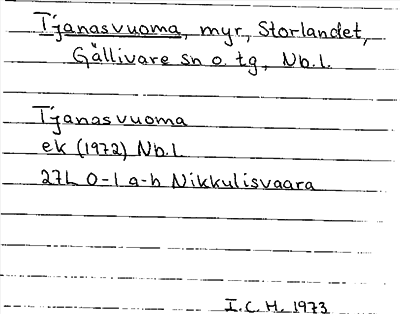 Tjanasvuoma, myr, Storlandet,
Gällivare sn o. tg, Nb.l.
Tjanasvuoma
ek (1972) Nb.l
27L 0-1 a-h Nikkulisvaara
I.C.H. 1973